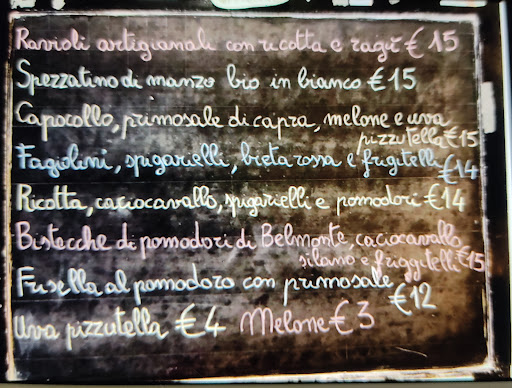 Ravioli artigianali con ricotta e ragù €15
Spezzatino di manzo bio in bianco €15
Capocollo, primosale di capra, melone e uva
pizzutella €15
Fagiolini, spigarielli, bieta rossa e frigitelli €14
Ricotta, caciocavallo, spigarielli e pomodori €14
Bistecche di pomodori di Belmonte, caciocavallo
silano e friggitelli €15
Frisella al pomodoro con primosale
€12
Uva pizzutella €4 Melone €3